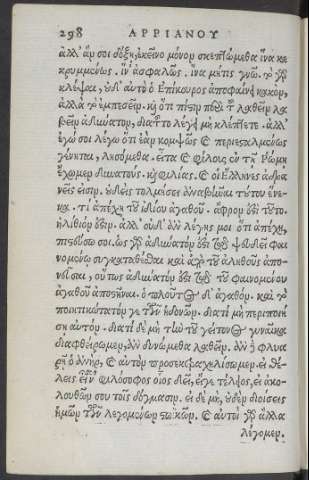 298 ΑΡΡΙΑΝΟΥ
ἀλλ' ἄν σοι δόξῃ, ἐκεῖνο μόνον σκεψώμεθα ἵνα κε
κρυμμένως. ἵν' ἀσφαλῶς. ἵνα μήτις γνῶ. τὸ γὰρ
κλέψαι, οὐδ' αὐτὸ ὁ Ἐπίκουρος ἀποφαίνει κακόν,
ἀλλὰ τὸ ἐμπεσεῖν. καὶ ὅτι πίστιν περὶ τοῦ λαθεῖν λα
βεῖν ἀδύνατον, διατοῦτο λέγει μὴ κλέπτετε. ἀλλ'
ἐγώ σοι λέγω ὅτι ἐὰν κομψῶς καὶ περιεσταλμένως
γένηται, λησόμεθα. εἶτα καὶ φίλους ἐν τῇ Ῥώμῃ
ἔχομεν δυνατούς. καὶ φιλίας. καὶ οἱ Ἕλληνες ἀδρα
νεῖς εἰσιν. οὐδεὶς τολμήσει ἀναβῆναι τούτου ἕνε
κα. τί ἀπέχῃ τοῦ ἰδίου ἀγαθοῦ. ἄφρον ἐστὶ τοῦτο.
ἠλίθιόν ἐστιν. ἀλλ' οὐδ' ἂν λέγῃς μοι ὅτι ἀπέχῃ,
πιστεύσω σοι. ὡς γὰρ ἀδύνατόν ἐστι τῷ ψευδεῖ φαι
νομένῳ συγκαταθέσθαι καὶ ἀπὸ τοῦ ἀληθοῦς ἀπο
νεῦσαι, οὕτως ἀδύνατόν ἐστι τοῦ φαινομένου
ἀγαθοῦ ἀποστῆναι. ὁ πλοῦτος δ' ἀγαθόν. καὶ τὸ
ποιητικώτατόν γε τῶν ἡδονῶν. διατί μὴ περιποιή
σῃ αὐτόν. διατί δὲ μὴ τὴν τοῦ γείτονος γυναῖκα
διαφθείρωμεν, ἂν δυνώμεθα λαθεῖν. ἂν φλυα
ρῇ ὁ ἀνὴρ, καὶ αὐτὸν προσεκτραχηλίσωμεν. εἰ θέ
λεις εἶναι φιλόσοφος οἷος δεῖ, εἴγε τέλειος, εἰ ἀκο
λουθῶν σου τοῖς δόγμασιν. εἰ δὲ μὴ, οὐδὲν διοίσεις
ἡμῶν τῶν λεγομένων στωικῶν. καὶ αὐτοὶ γὰρ ἄλλα
λέγομεν.